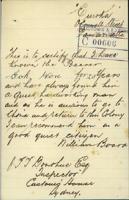 "Eureka"
O'Connell Street
C 00606
This is to certify that I have
known the Bearer
for 20 years
and have always found him
a Quiet hardworking man
and as he is anxious to go to
China and return to this Colony
I can recommend him as a
good quiet citizen
William Boord
Esq
Inspector
Customs House
Sydney